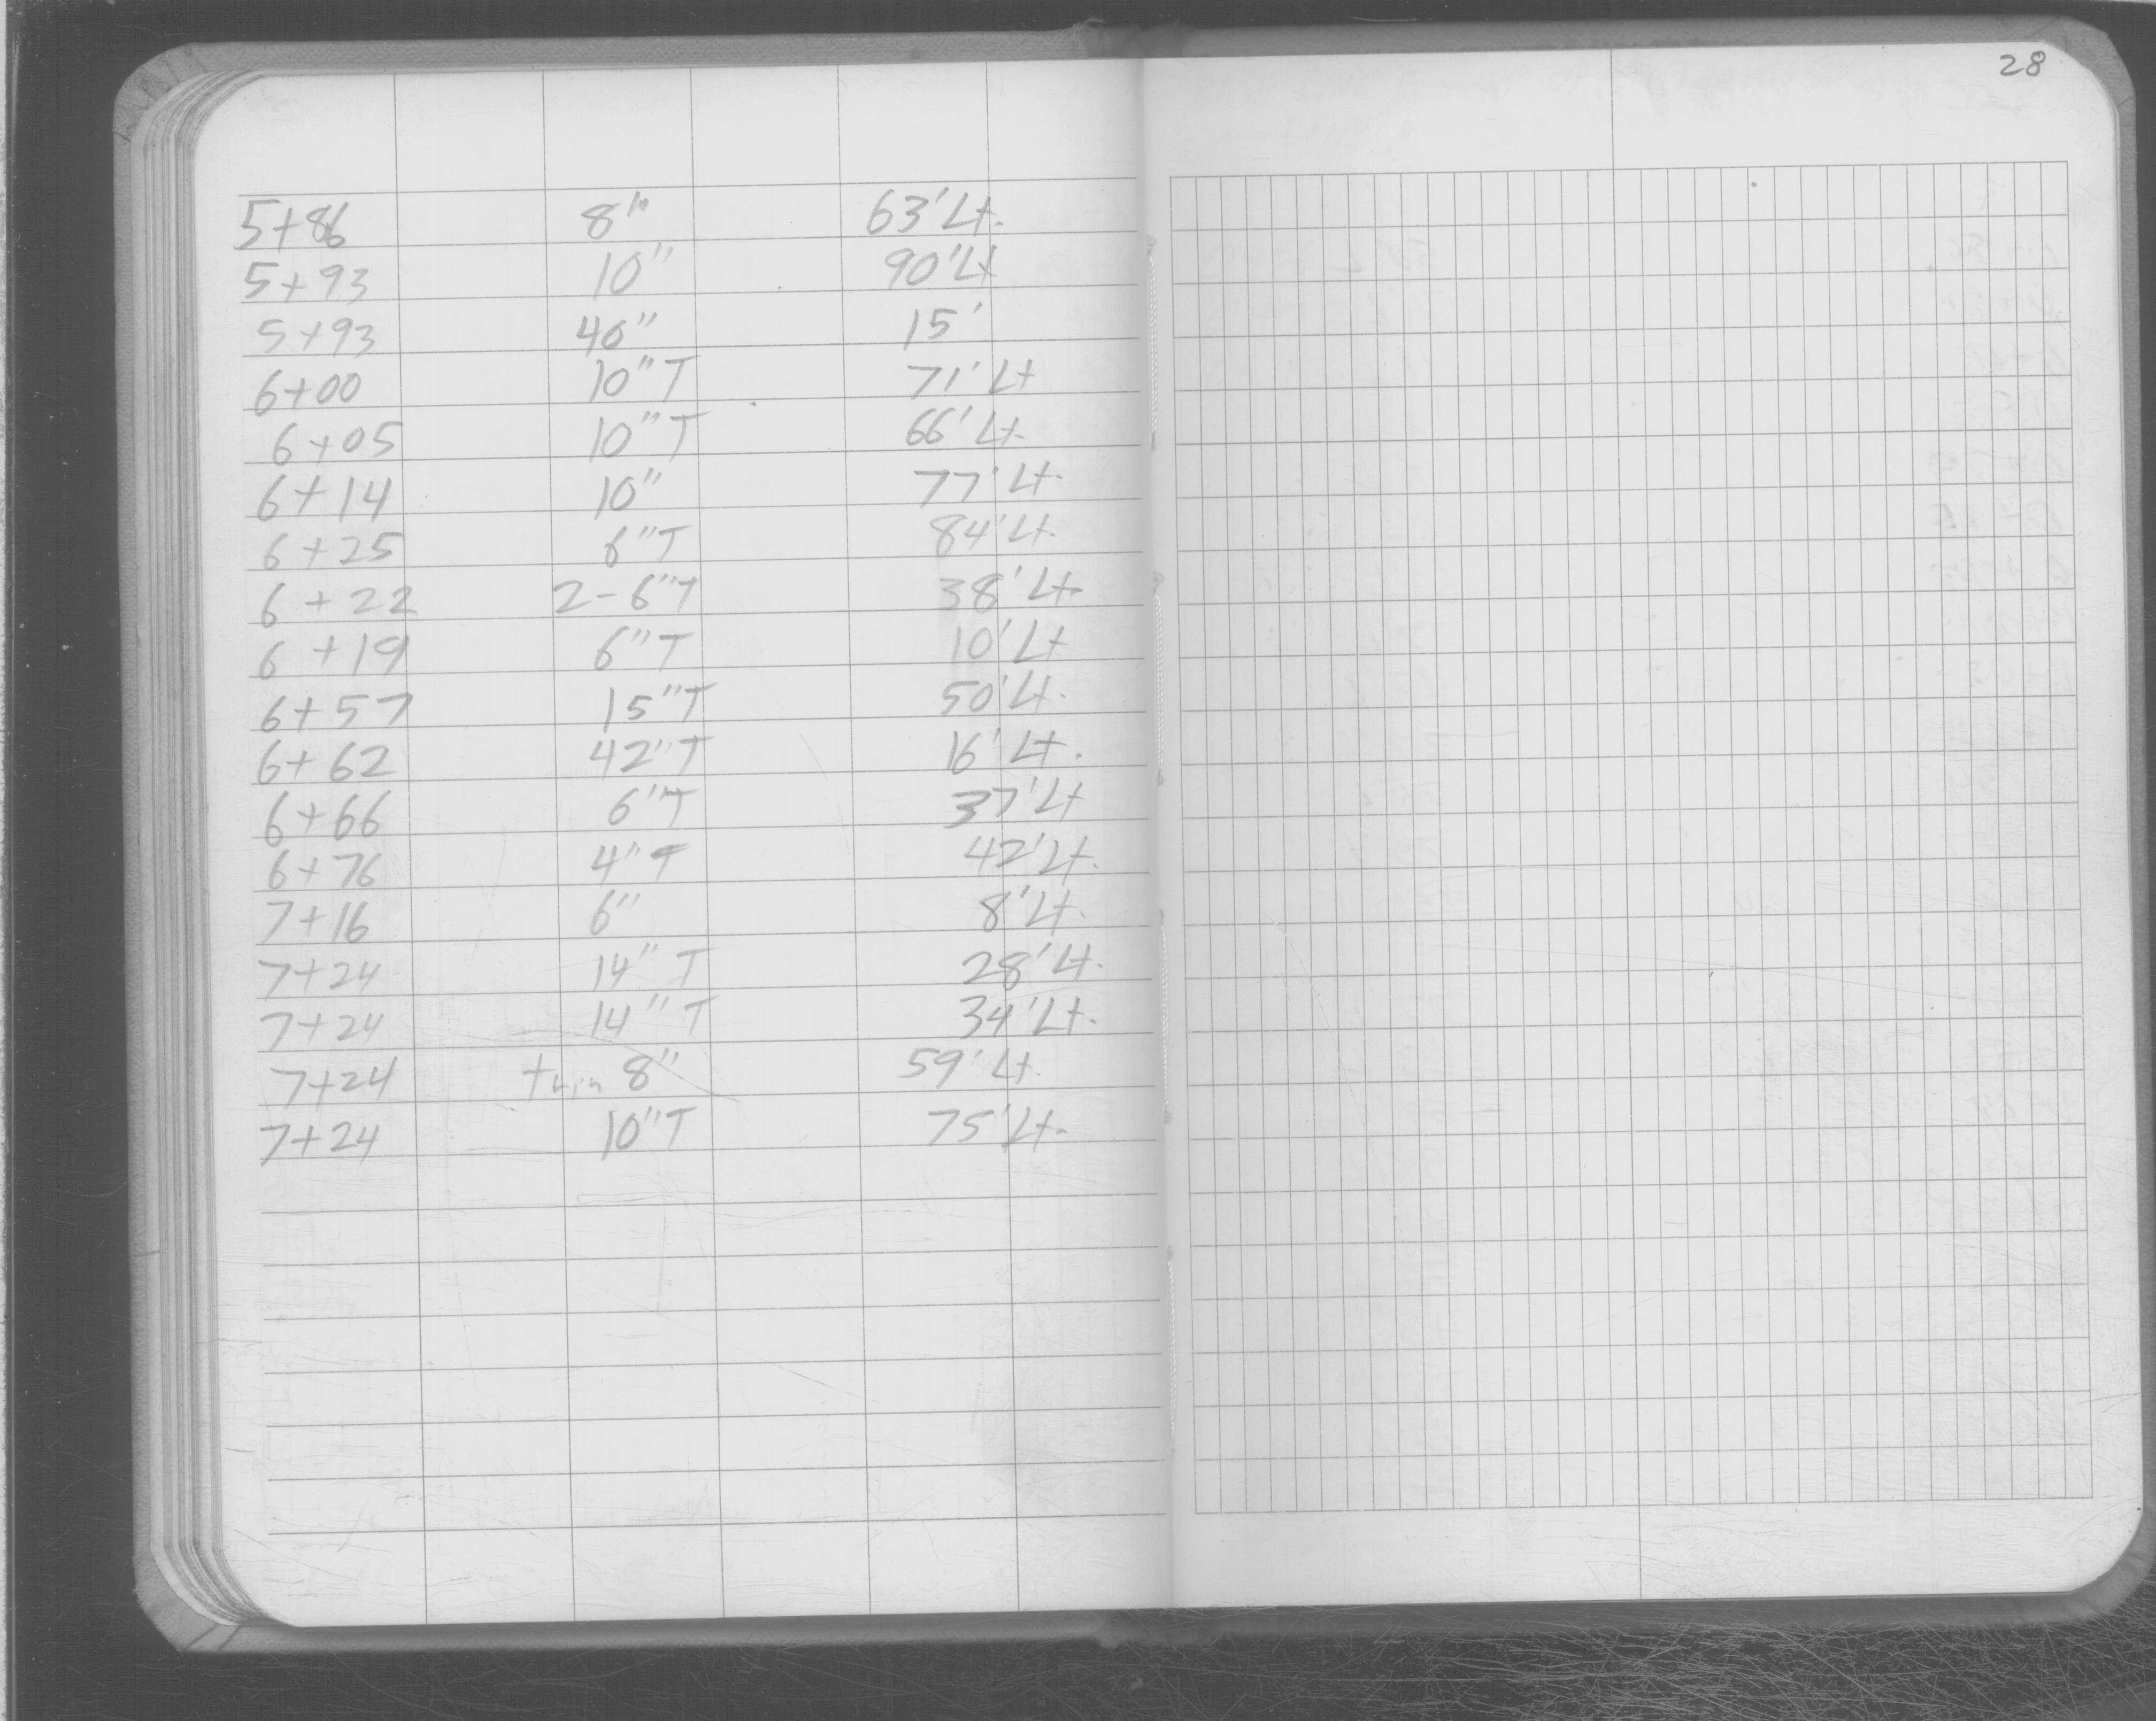 28
5+86 8" 63'Lt.
5+93 10" 90'Lt
5+93 40" 15'
6+00 10"T 71'Lt
6+05 10"T 66'Lt.
6+14 10" 77'Lt.
6+25 6"T 84'Lt.
6+22 2-6"T 38'Lt.
6+19 6"T 10'Lt
6+57 15"T 50'Lt.
6+62 42"T 16'Lt.
6+66 6"T 37'Lt
6+76 4"T 42'Lt.
7+16 6" 8'Lt.
7+24 14"T 28'Lt.
7+24 14"T 34'Lt.
7+24 twin 8" 59'Lt.
7+24 10"T 75'Lt.